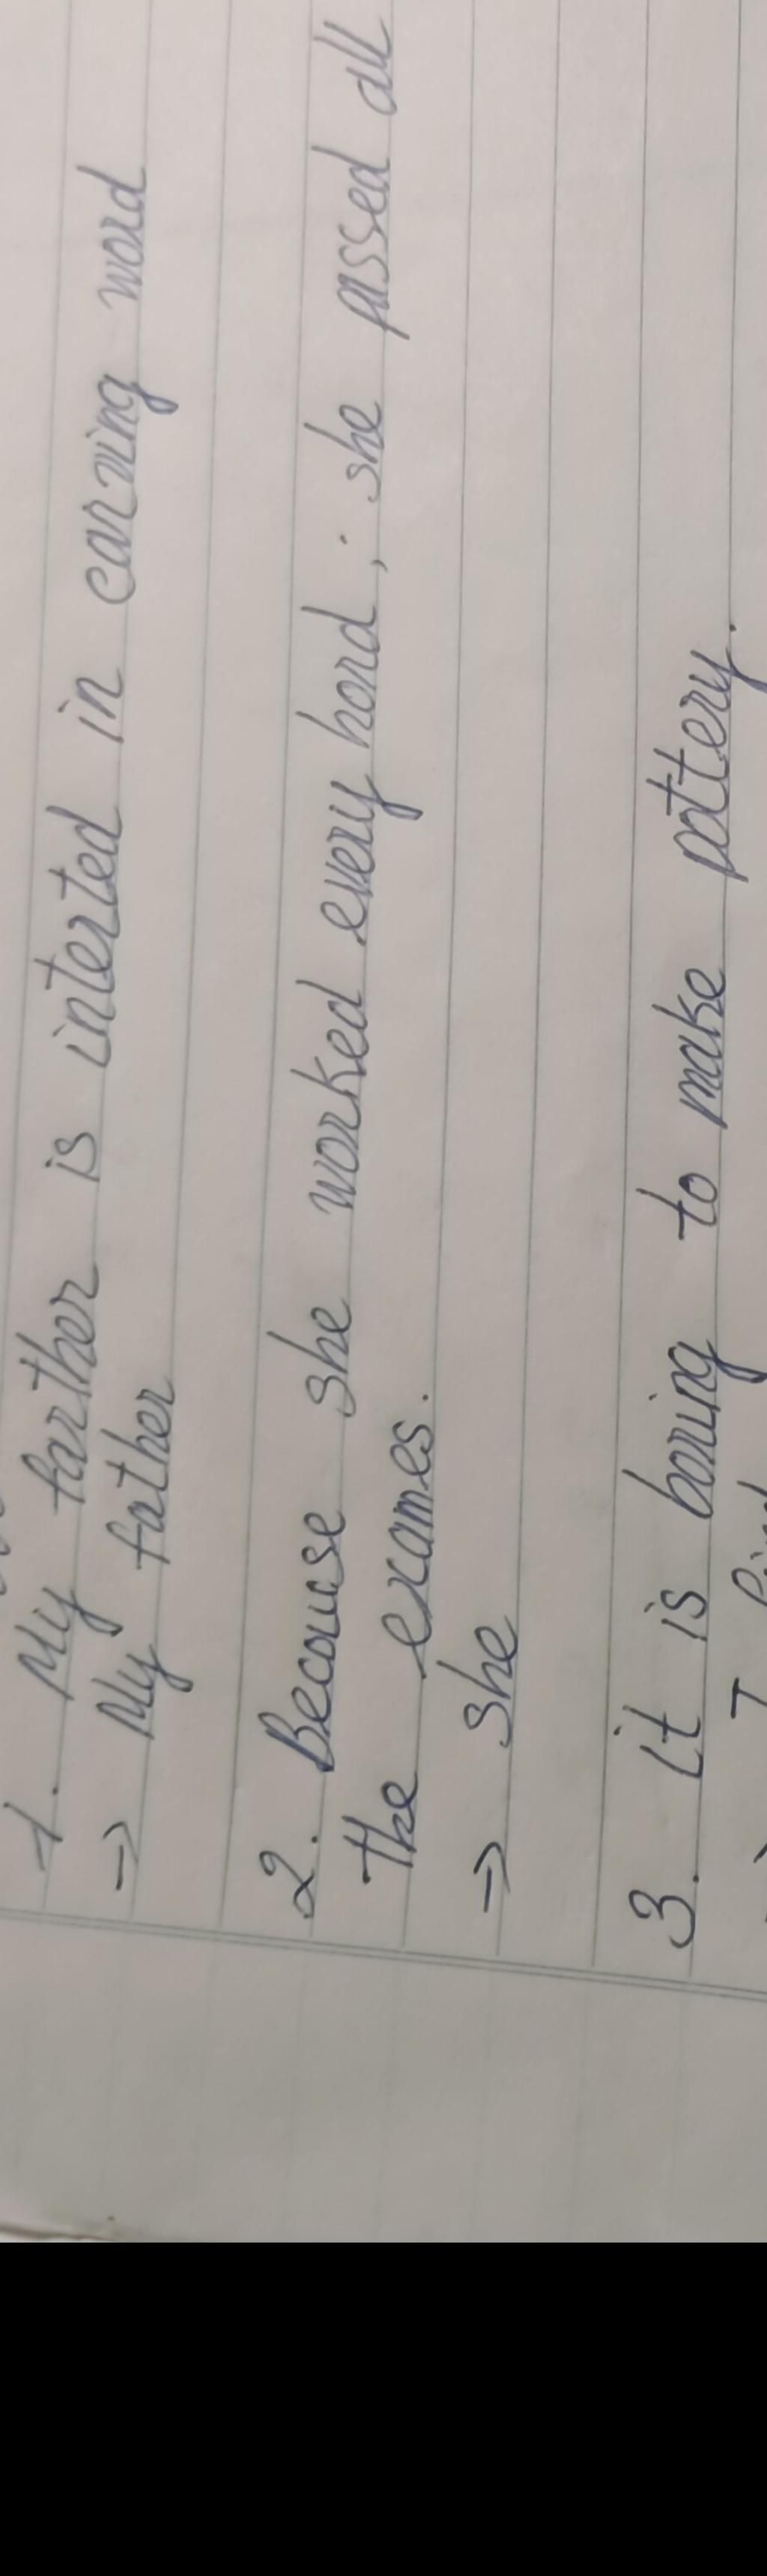 1. My farther is interted in carving word
→ My father
2. Becouse she worked every hord, she passed all
the exames.
→ she
3. it is boring to make pottery.
→ I find